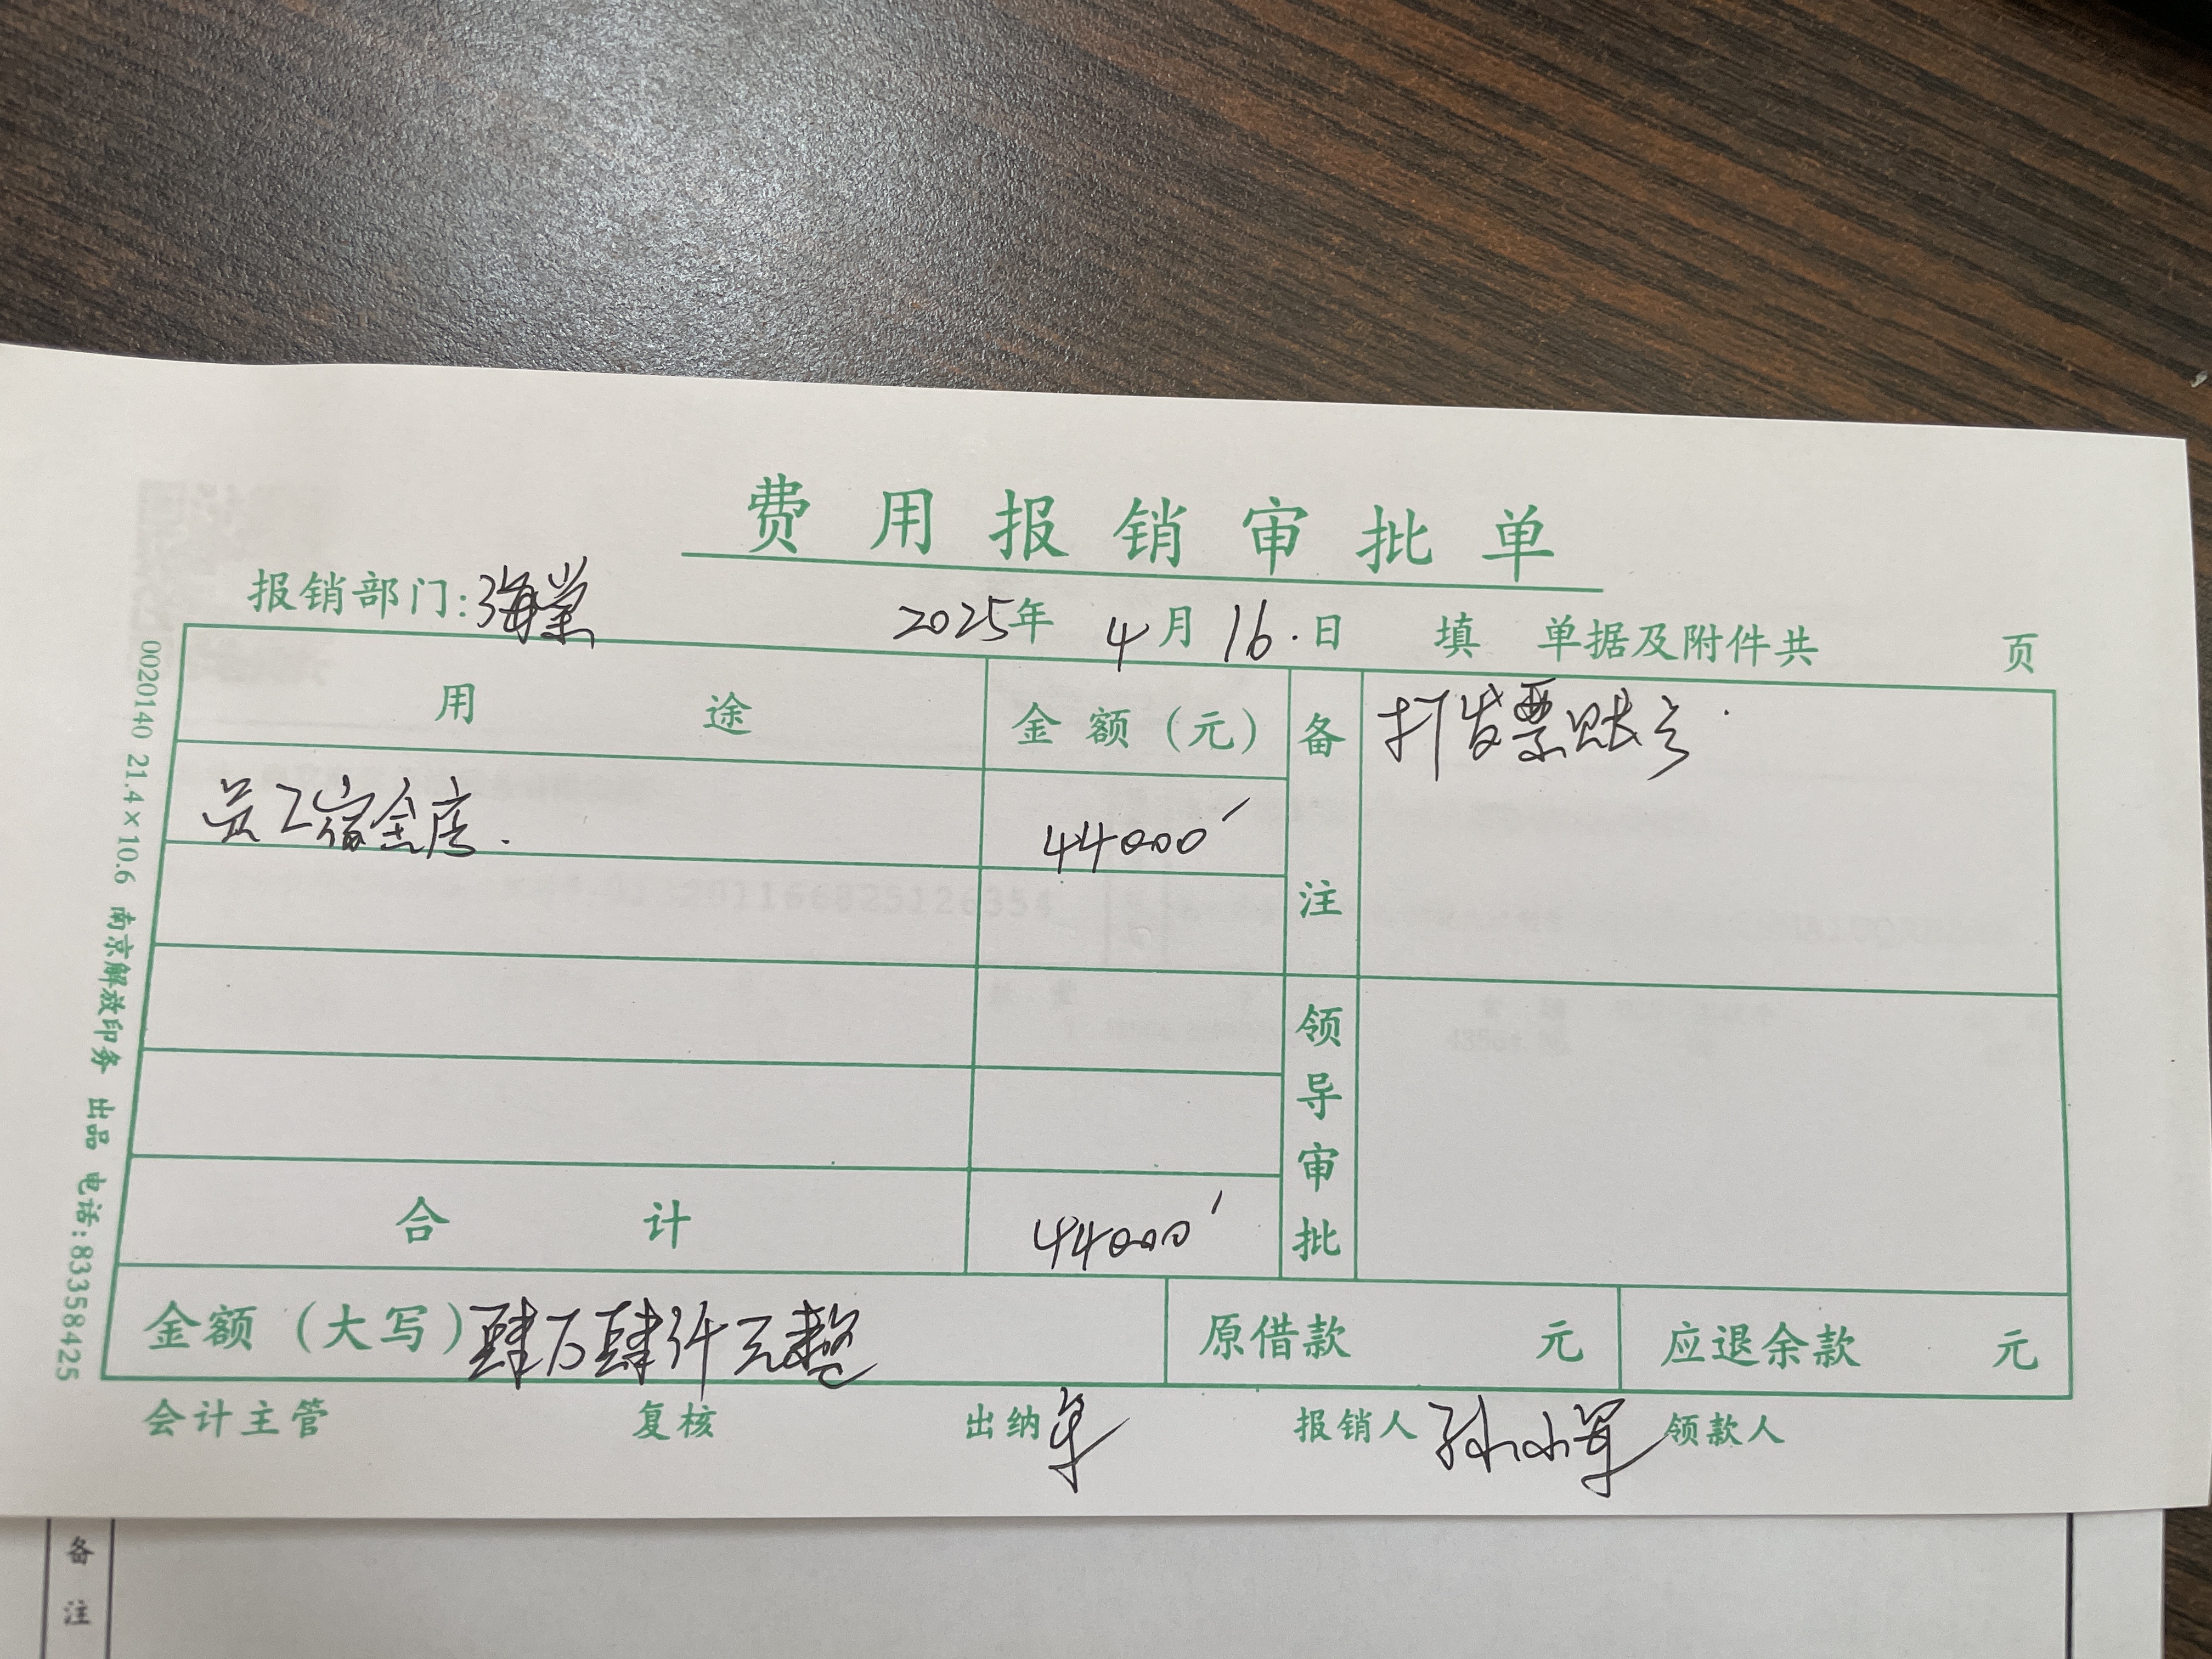 费用报销审批单
报销部门:海棠 2025年 4月 16.日 填 单据及附件共 页
用途 金额(元) 备注 打发票账号
员工宿舍 44000
合计 44000
领导审批
金额(大写)肆万肆仟元整 原借款 元 应退余款 元
会计主管 复核 出纳 报销人 孙小军 领款人
0020140 21.4×10.6 南京解放印务 出品 电话:83358425
备
注